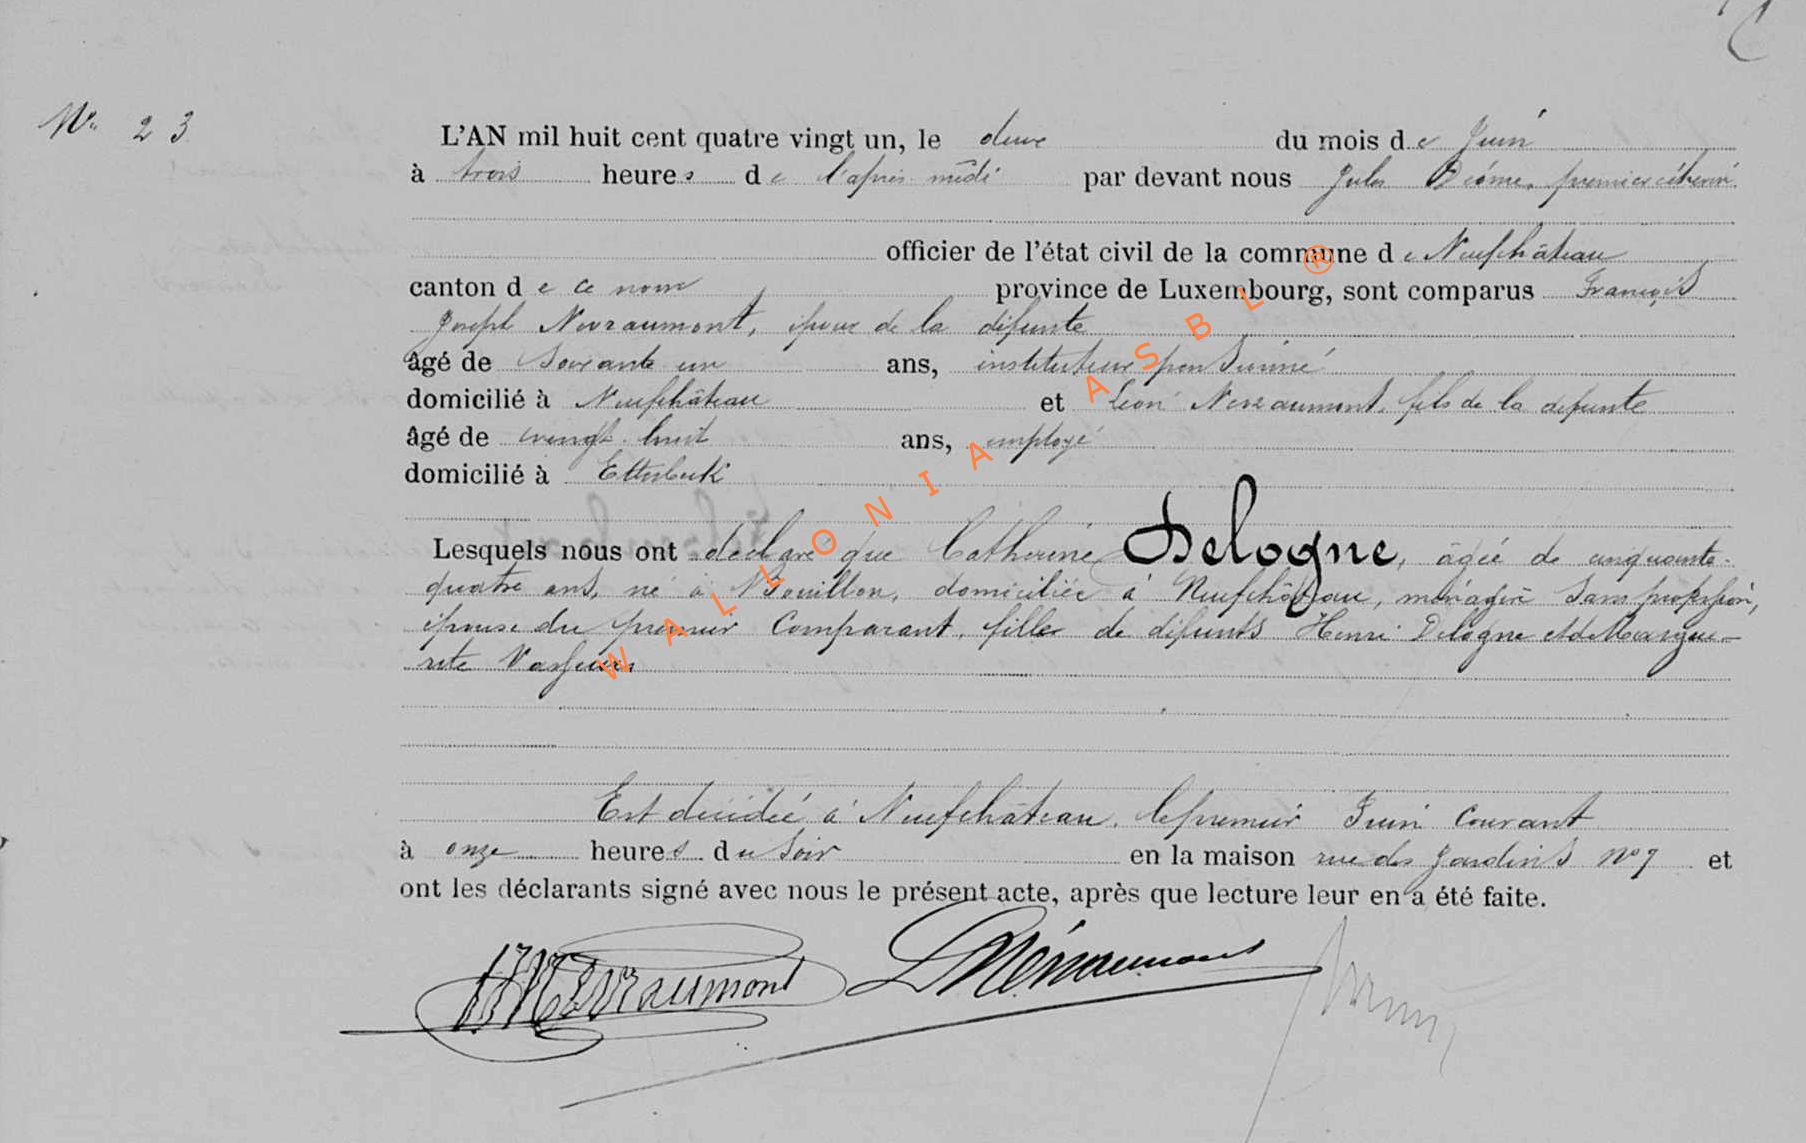 N° 23
L'AN mil huit cent quatre vingt un, le deux du mois de Juin
à trois heures de l'après midi par devant nous Jules premier échevin
officier de l'état civil de la commune de Neufchâteau
canton de ce nom province de Luxembourg, sont comparus François
Joseph Nevraumont, époux de la défunte
âgé de soixante un ans, instituteur pensionné
domicilié à Neufchâteau et Léon Nevraumont, fils de la défunte
âgé de vingt huit ans, employé
domicilié à Etterbeek
Lesquels nous ont déclaré que Catherine Delogne, âgée de cinquante-
quatre ans, né à Bouillon, domiciliée à Neufchâteau, ménagère sans profession,
épouse du premier Comparant, fille de défunts Henri Delogne et de Margue-
rite
Est décédée à Neufchâteau, le premier Juin Courant
à onze heures du soir en la maison rue des Jardins N° 7 et
ont les déclarants signé avec nous le présent acte, après que lecture leur en a été faite.
Nevraumont L Névraumont
WALLONIA ASBL ®